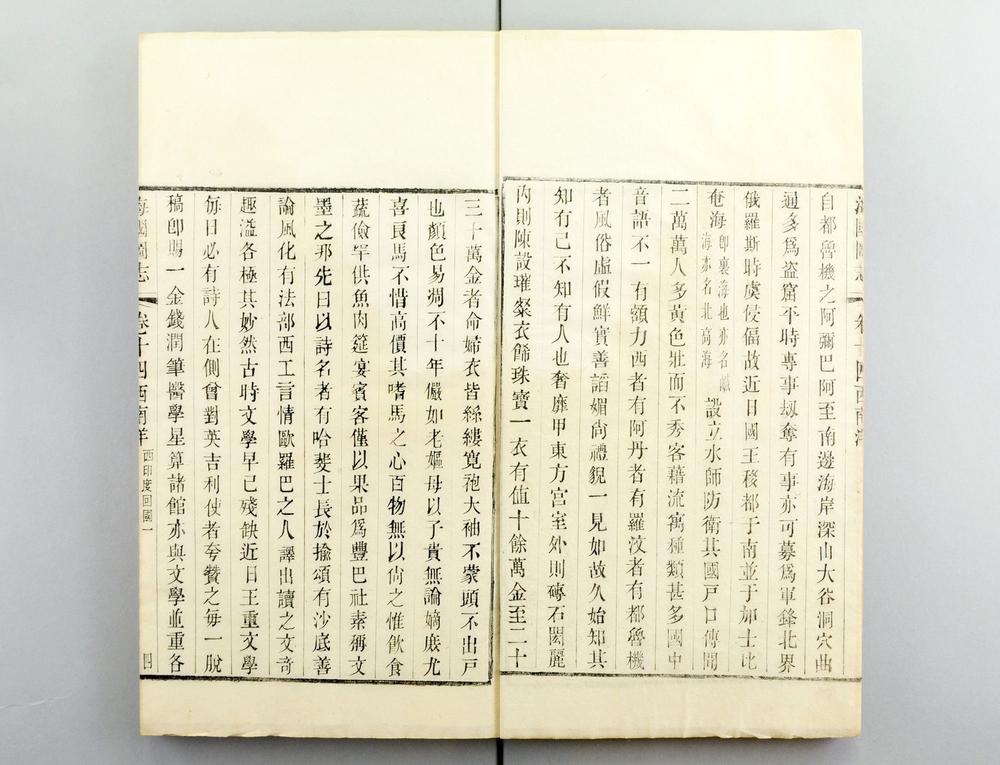 海國圖志 卷十四 西南洋
自都魯機之阿彌巴阿至南邊海岸深山大谷洞穴曲
通多爲盜窟平時專事劫奪有事亦可募爲軍鋒北界
俄羅斯時虞侵偪故近日國王移都于南並于加士比
奄海卽裏海也亦名鹹海亦名北高海設立水師防衛其國戸口傳聞
二萬萬人多黃色壯而不秀客藉流寓種類甚多國中
音語不一有額力西者有阿丹者有羅汶者有都魯機
者風俗虛假鮮實善謟媚尙禮貌一見如故久始知其
知有己不知有人也奢靡甲東方宮室外則磚石閎麗
內則陳設璀粲衣餙珠寶一衣有値十餘萬金至二十
三十萬金者命婦衣皆絲縷寬袍大袖不蒙頭不出戸
也顏色易凋不十年儼如老嫗母以子貴無論嫡庶尤
喜良馬不惜高價其嗜馬之心百物無以尙之惟飲食
蔬儉罕供魚肉筵宴賓客僅以果品爲豐巴社素稱文
墨之邦先日以詩名者有哈斐士長於揄頌有沙底善
論風化有法部西工言情歐羅巴之人譯出讀之文奇
趣溢各極其妙然古時文學早已殘缺近日王重文學
每日必有詩人在側曾對英吉利使者夸贊之每一脫
稿卽賜一金錢潤筆醫學星算諸館亦與文學並重各
海國圖志 卷十四 西南洋 西印度回國一 四